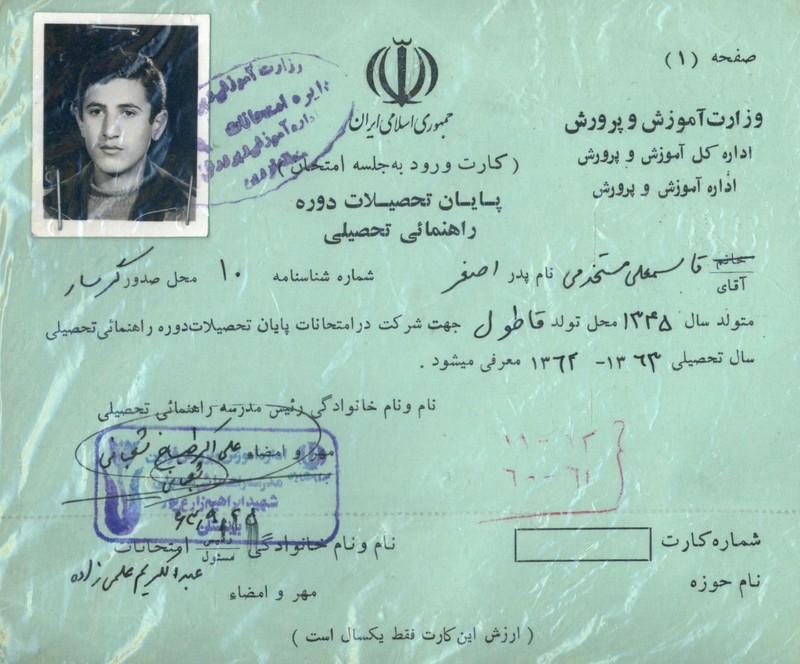 صفحه (۱)
جمهوری اسلامی ایران
وزارت آموزش و پرورش
اداره کل آموزش و پرورش
اداره آموزش و پرورش
(کارت ورود به جلسه امتحان)
پایان تحصیلات دوره
راهنمائی تحصیلی
خانم
آقای قاسمعلی مستخدمی نام پدر اصغر شماره شناسنامه ۱۰ محل صدور گرمسار
متولد سال ۱۳۴۵ محل تولد قاطول جهت شرکت در امتحانات پایان تحصیلات دوره راهنمائی تحصیلی
سال تحصیلی ۱۳۶۳ - ۱۳۶۲ معرفی میشود .
نام و نام خانوادگی رئیس مدرسه راهنمائی تحصیلی
مهر و امضاء علی اکبر
۱۱ - ۱۲
۶۰ - ۶۱
شهید ابراهیم زارع پور
شماره کارت
نام و نام خانوادگی رئیس مسئول امتحانات
نام حوزه
عبدالکریم علمی زاده
مهر و امضاء
(ارزش این کارت فقط یکسال است)